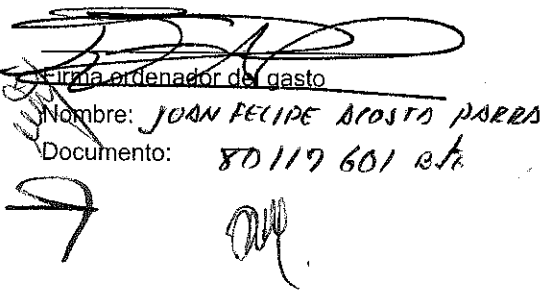 Firma ordenador del gasto
Nombre: JUAN FELIPE ACOSTA PARRA
Documento: 80117601 Bta